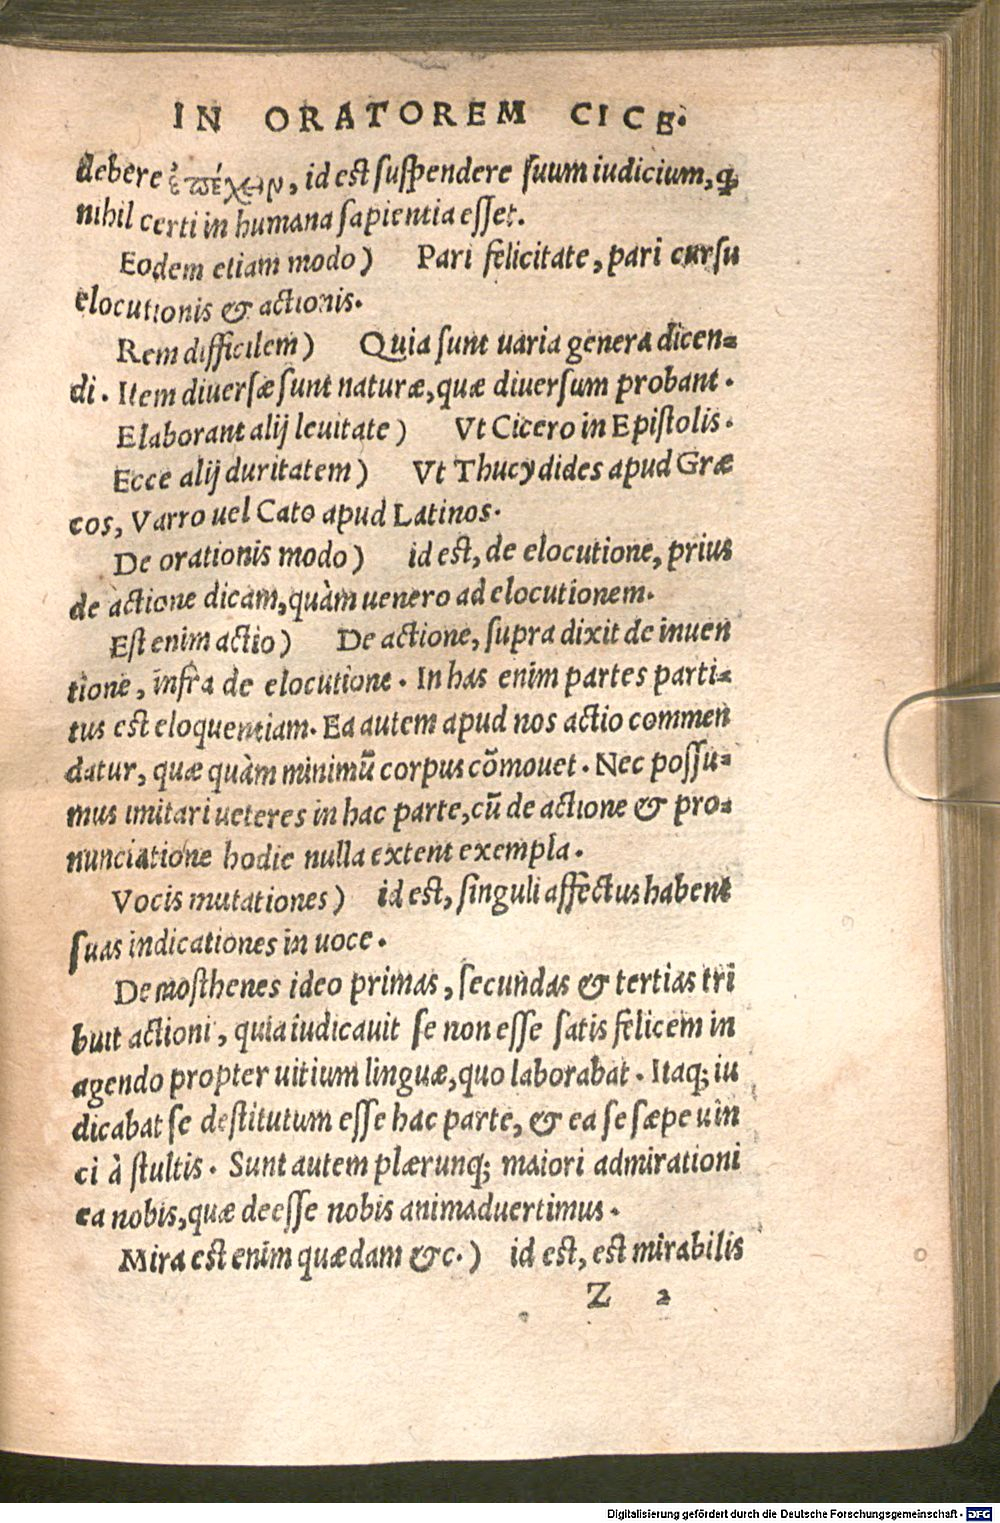 IN ORATOREM CICE.
debere ἐπέχειν, id est suspendere suum iudicium, ꝙ
nihil certi in humana sapientia esset.
Eodem etiam modo) Pari felicitate, pari cursu
elocutionis & actionis.
Rem difficilem) Quia sunt uaria genera dicen=
di. Item diuersæ sunt naturæ, quæ diuersum probant.
Elaborant alij leuitate) Vt Cicero in Epistolis.
Ecce alij duritatem) Vt Thucydides apud Græ
cos, Varro uel Cato apud Latinos.
De orationis modo) id est, de elocutione, prius
de actione dicam, quàm uenero ad elocutionem.
Est enim actio) De actione, supra dixit de inuen
tione, infra de elocutione. In has enim partes parti=
tus est eloquentiam. Ea autem apud nos actio commen
datur, quæ quàm minimū corpus cōmouet. Nec possu=
mus imitari ueteres in hac parte, cū de actione & pro=
nunciatione hodie nulla extent exempla.
Vocis mutationes) id est, singuli affectus habent
suas indicationes in uoce.
Demosthenes ideo primas, secundas & tertias tri
buit actioni, quia iudicauit se non esse satis felicem in
agendo propter uitium linguæ, quo laborabat. Itaq; iu
dicabat se destitutum esse hac parte, & ea se sæpe uin
ci à stultis. Sunt autem plærunq; maiori admirationi
ea nobis, quæ deesse nobis animaduertimus.
Mira est enim quædam &c.) id est, est mirabilis
Z 2
Digitalisierung gefördert durch die Deutsche Forschungsgemeinschaft - DFG